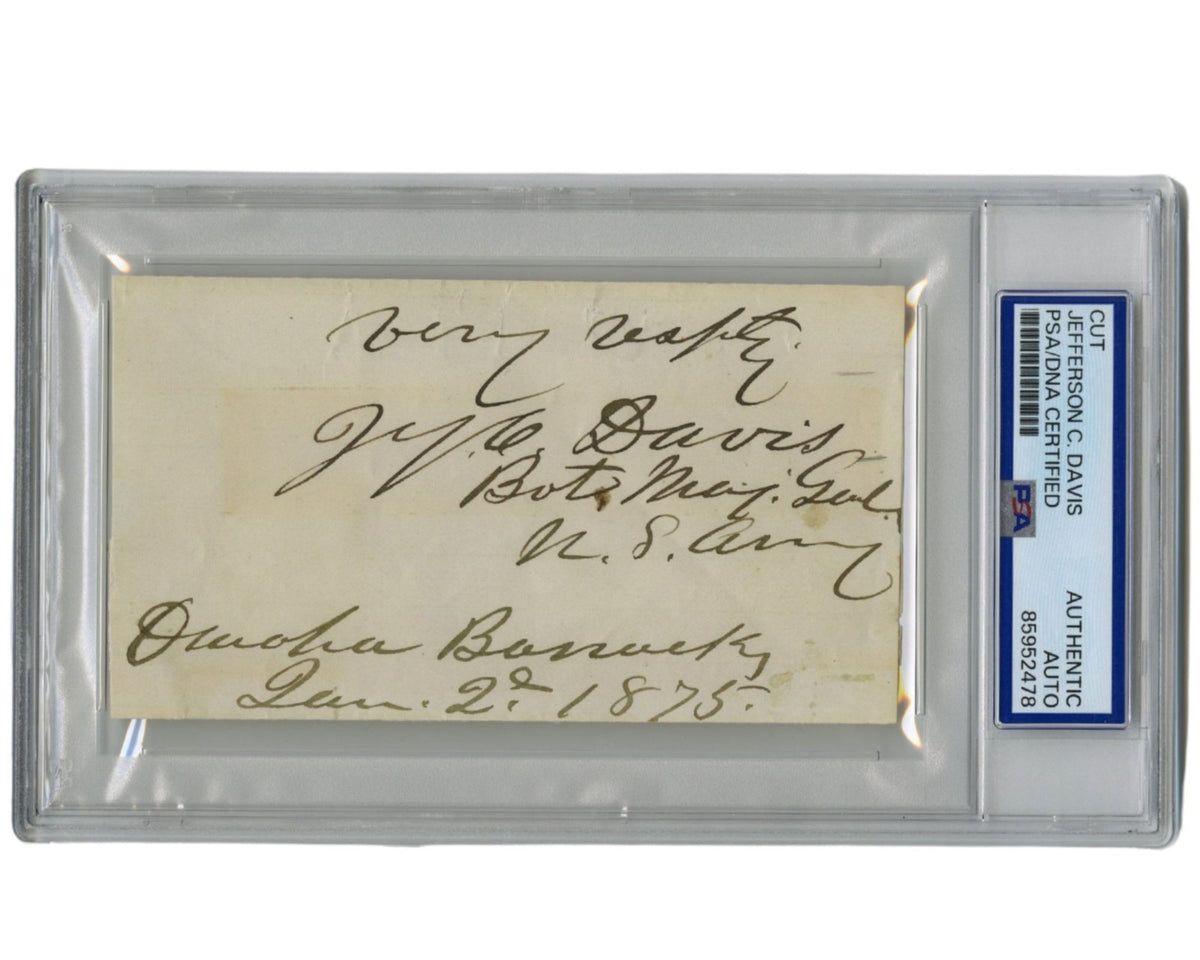 very respty.
Jef. C. Davis
Bvt. Maj. Genl.
U. S. Army
Omaha Barracks,
Jan. 2d 1875.
CUT
JEFFERSON C. DAVIS
PSA/DNA CERTIFIED
PSA
AUTHENTIC
AUTO
85952478